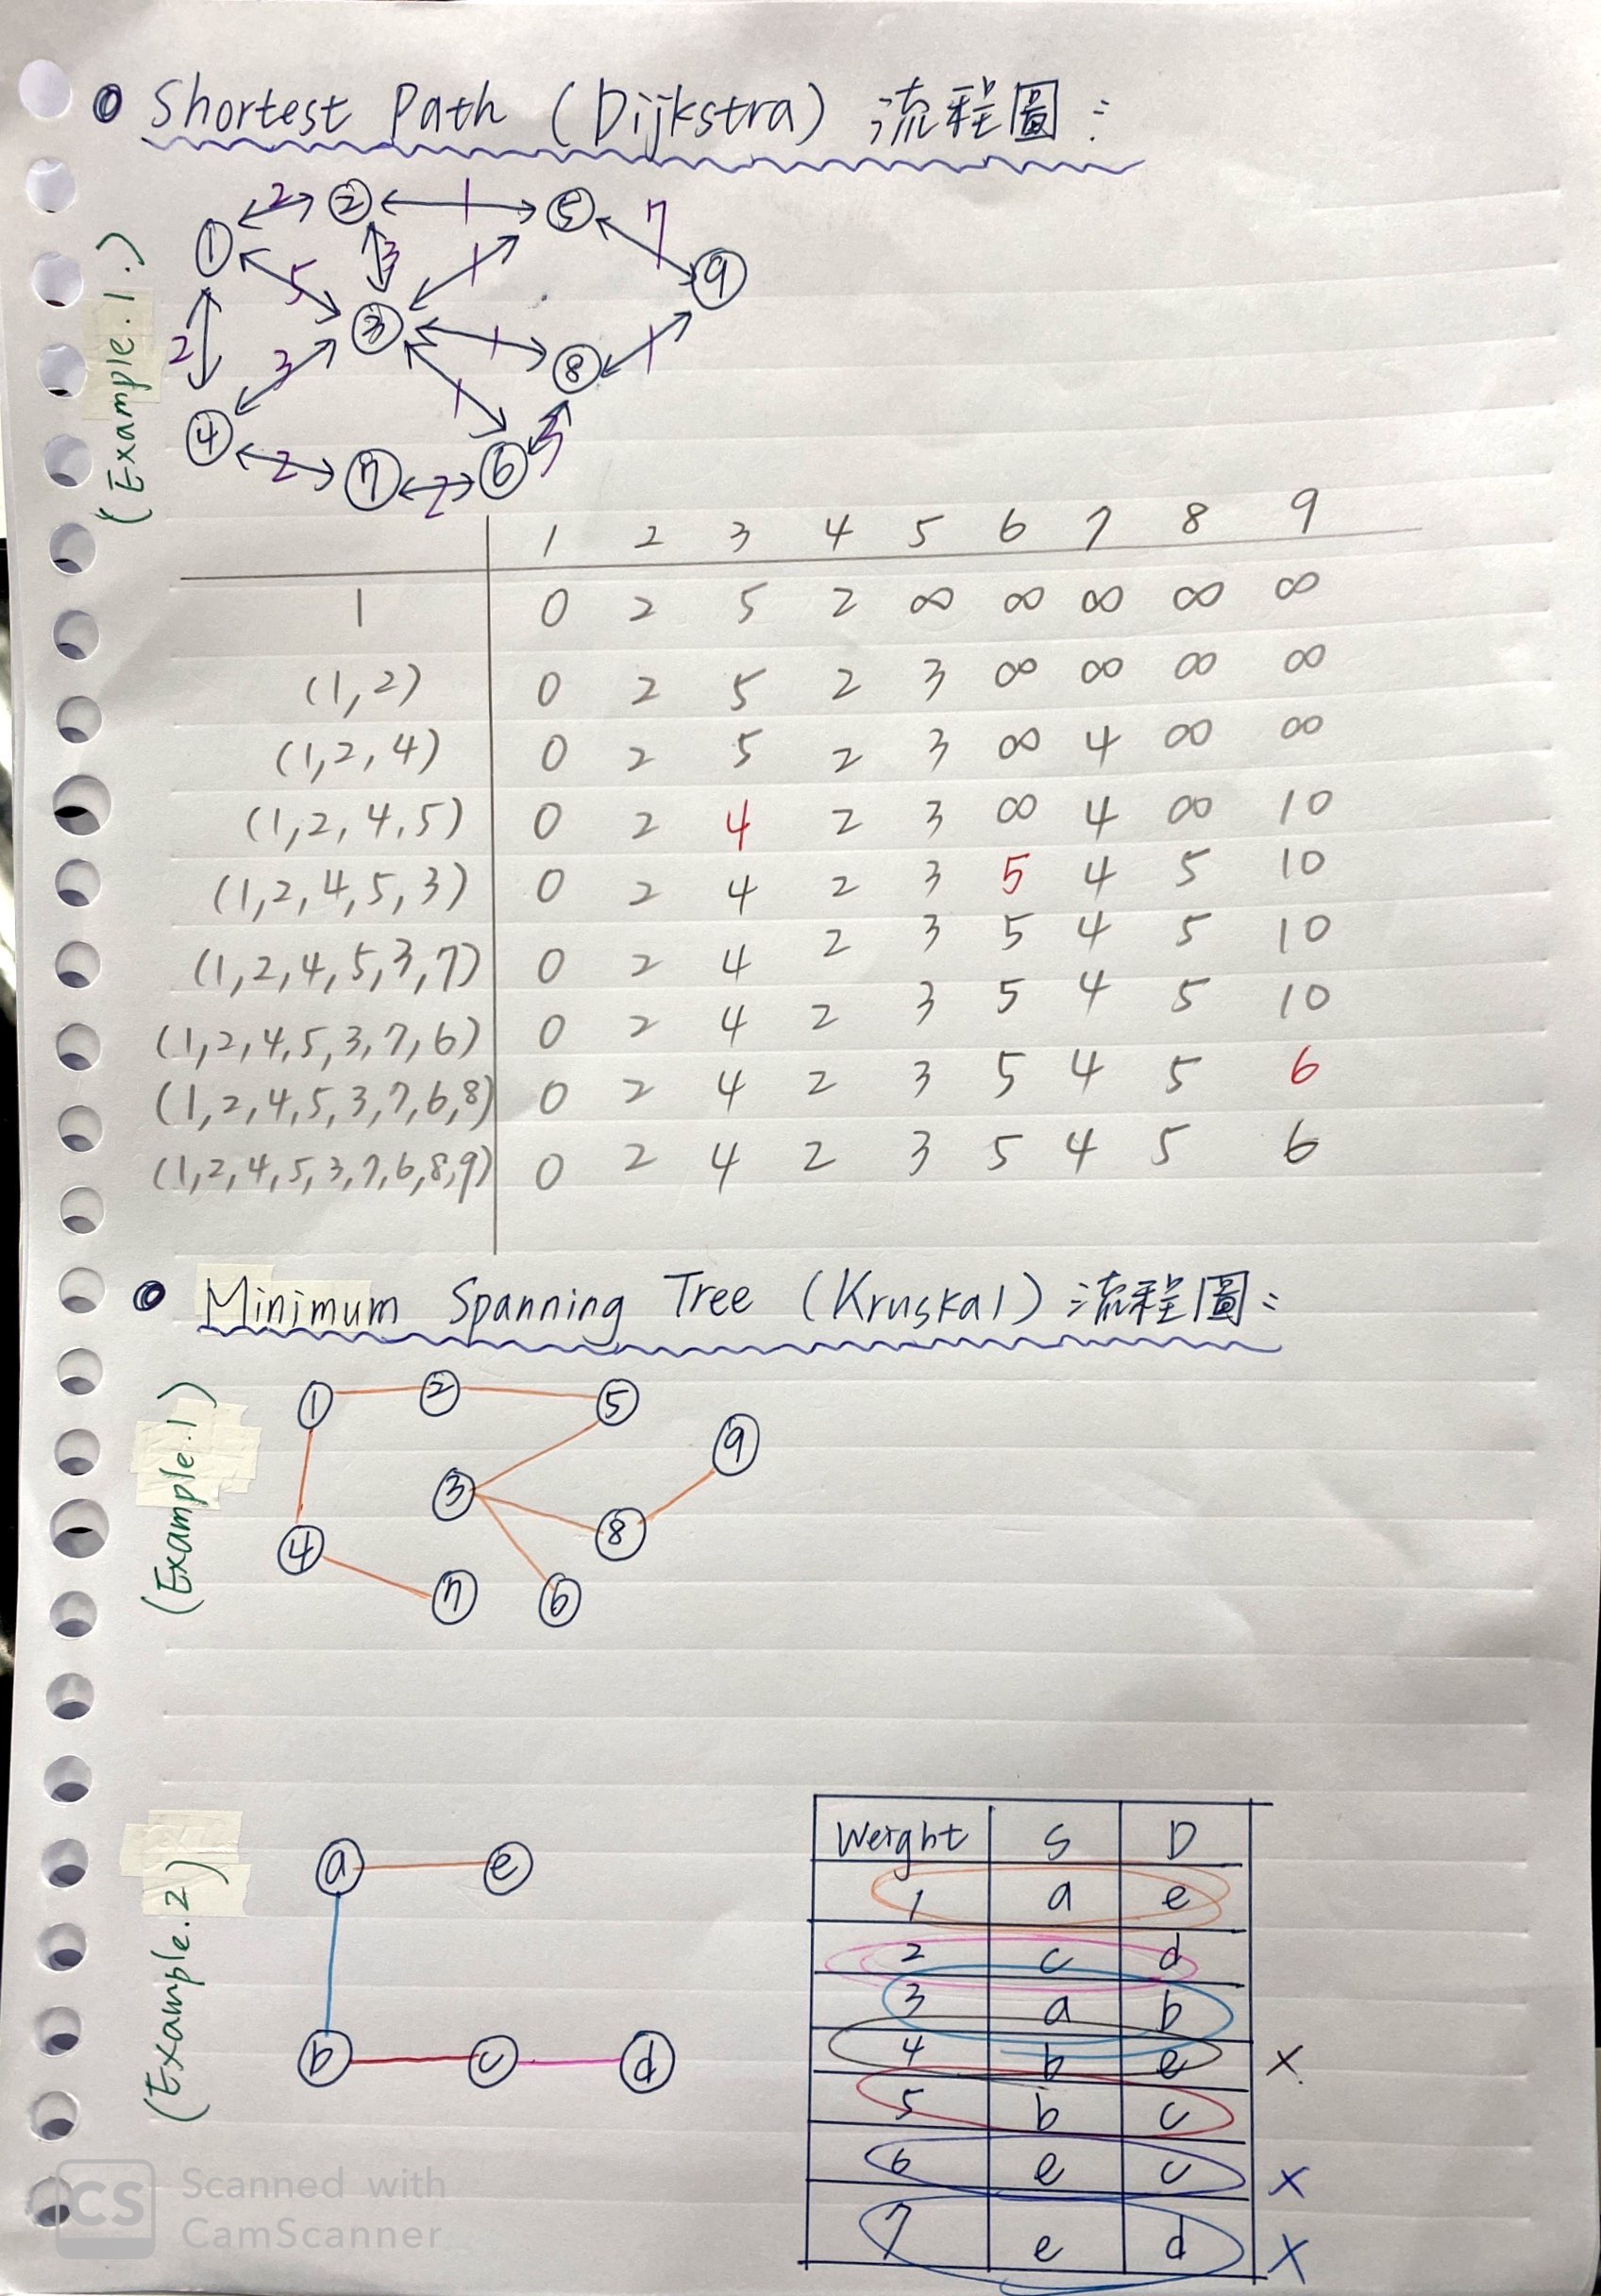 Shortest Path (Dijkstra) 流程圖:
(Example.1.)
2 1 7
1 2 5 9
5 3 1
3 1 8 1
2 3 1
4 2 7 2 6 3
1 2 3 4 5 6 7 8 9
1 0 2 5 2 ∞ ∞ ∞ ∞ ∞
(1,2) 0 2 5 2 3 ∞ ∞ ∞ ∞
(1,2,4) 0 2 5 2 3 ∞ 4 ∞ ∞
(1,2,4,5) 0 2 4 2 3 ∞ 4 ∞ 10
(1,2,4,5,3) 0 2 4 2 3 5 4 5 10
(1,2,4,5,3,7) 0 2 4 2 3 5 4 5 10
(1,2,4,5,3,7,6) 0 2 4 2 3 5 4 5 10
(1,2,4,5,3,7,6,8) 0 2 4 2 3 5 4 5 6
(1,2,4,5,3,7,6,8,9) 0 2 4 2 3 5 4 5 6
Minimum Spanning Tree (Kruskal) 流程圖:
(Example.1)
1 2 5
9
3
8
4
7 6
(Example.2)
a e
b c d
Weight S D
1 a e
2 c d
3 a b
4 b e X
5 b c
6 e c X
7 e d X
CS Scanned with
CamScanner